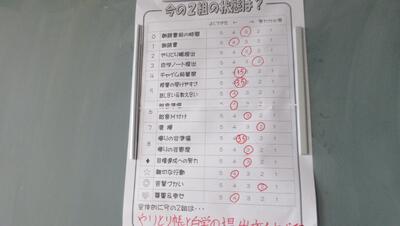 今の2組の状態は？
よくできた ← → 努力が必要
0 朝読書前の時間 5 4 3 2 1
1 朝読書 5 4 3 2 1
2 やりとり帳提出 5 4 3 2 1
3 自学ノート提出 5 4 3 2 1
4 チャイム前着席 5 4 3.5 2 1
5 授業の受けやすさ 5 3.5 2 1
話し合い&教え合い 5 4 3 2 1
給食準備 5 4 3 2 1
給食片付け 5 4 3 2 1
7 清掃 5 4 3 2 1
8 帰りの会準備 5 3.5 2 1
帰りの会態度 5 4 3 2 1
◆ 目標達成への努力 5 4 3 2 1
☆ 親切な行動 5 4 3 2 1
◎ 言葉づかい 5 4 3 2 1
尊重&幸せ 5 4 3 2 1
全体的に今の2組は…
やりとり帳と自学の提出